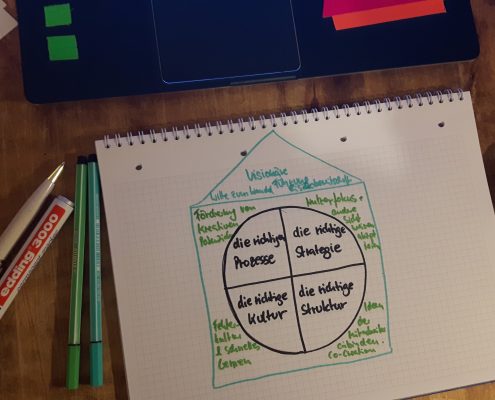 Visionäre
Führung
Wille zum Wandel
Förderung von
kreativen
die richtigen
Prozesse
die richtige
Strategie
die richtige
Kultur
die richtige
Struktur
Fehler-
kultur
& schnelles
Lernen
andere
Ideen
der
Mitarbeiter
einbinden.
Co-Creation
edding 3000